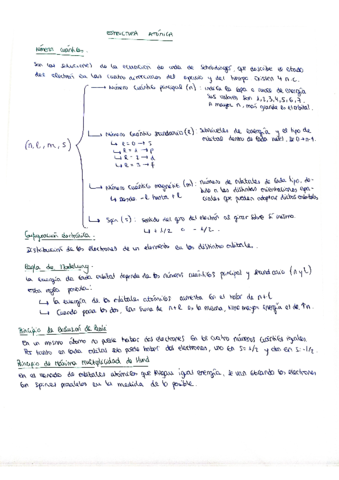 ESTRUCTURA ATÓMICA
Números cuánticos.
Son las soluciones de la ecuación de onda de Schrödinger, que describe el estado
del electrón en las cuatro direcciones del espacio y del tiempo. Existen 4 n.c.
(n, l, m, s)
→ Número cuántico principal (n): indica la capa o nivel de energía
Sus valores son 1, 2, 3, 4, 5, 6, 7.
A mayor n, más grande es el orbital.
→ Número cuántico secundario (l): Subniveles de energía y el tipo de
orbital dentro de cada nivel. de 0 → n-1.
↳ l = 0 → s
↳ l = 1 → p
↳ l = 2 → d
↳ l = 3 → f
→ Número cuántico magnético (m): número de orbitales de cada tipo, de-
bido a las distintas orientaciones espa-
ciales que pueden adoptar dichos orbitales.
↳ desde -l hasta + l
→ Spin (s): sentido del giro del electrón al girar sobre sí mismo.
↳ + 1/2 o - 1/2.
Configuración electrónica
Distribución de los electrones de un elemento en los distintos orbitales.
Regla de Madelung
La energía de cada orbital depende de los números cuánticos principal y secundario (n y l)
esta regla
↳ La energía de los orbitales atómicos aumenta con el valor de n+l
↳ Cuando para los dos, la suma de n+l es la misma, tiene mayor energía el de ↑n.
Principio de Exclusión de Pauli
En un mismo átomo no puede haber dos electrones con los cuatro números cuánticos iguales.
Por tanto en cada orbital solo puede haber dos electrones, uno con S=+1/2 y otro con S=-1/2.
Principio de máxima multiplicidad de Hund
En el de orbitales atómicos que tengan igual energía, se van situando los electrones
con spines paralelos en la medida de lo posible.